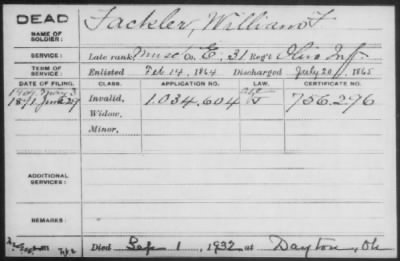 DEAD
NAME OF SOLDIER: Fackler, William F
SERVICE: Late rank Musc Co. E, 31 Reg't Ohio Inff
TERM OF SERVICE: Enlisted Feb 14, 1864 Discharged July 20, 1865
DATE OF FILING. CLASS. APPLICATION NO. LAW. CERTIFICATE NO.
1891 June 29 Invalid, 1.034.604 756.296
Widow,
Minor,
ADDITIONAL SERVICES:
REMARKS:
Died Sep 1, 1932 at Dayton, Oh